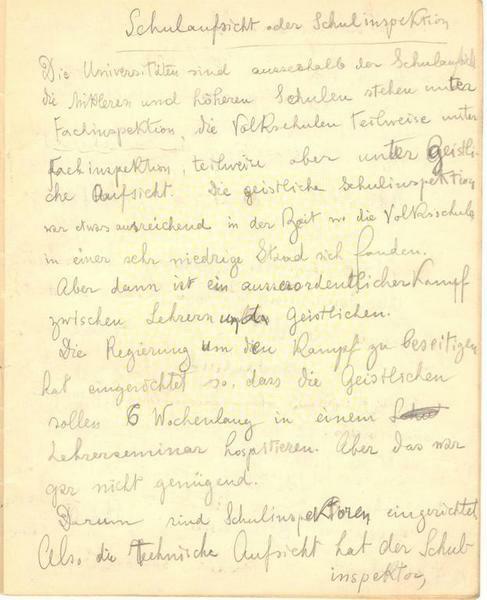 Schulaufsicht oder Schulinspektion
Die Universitäten sind ausserhalb der Schulaufsicht
die Mittleren und höheren Schulen stehen unter
Fachinspektion, die Volkschulen teilweise unter
Fachinspektion, teilweise aber unter Geistli-
che Aufsicht. Die geistliche Schulinspektion
war etwas ausreichend in der Zeit wo die Volksschule
in einer sehr niedrige Stand sich fanden.
Aber dann ist ein ausserordentlicher Kampf
zwischen Lehrern und Geistlichen.
Die Regierung um den Kampf zu beseitigen
hat eingerichtet so, dass die Geistlichen
sollen 6 Wochenlang in einem
Lehrerseminar hospitieren. Aber das war
gar nicht genügend.
Darum sind Schulinspektoren eingerichtet
Also die technische Aufsicht hat der Schul-
inspektor,